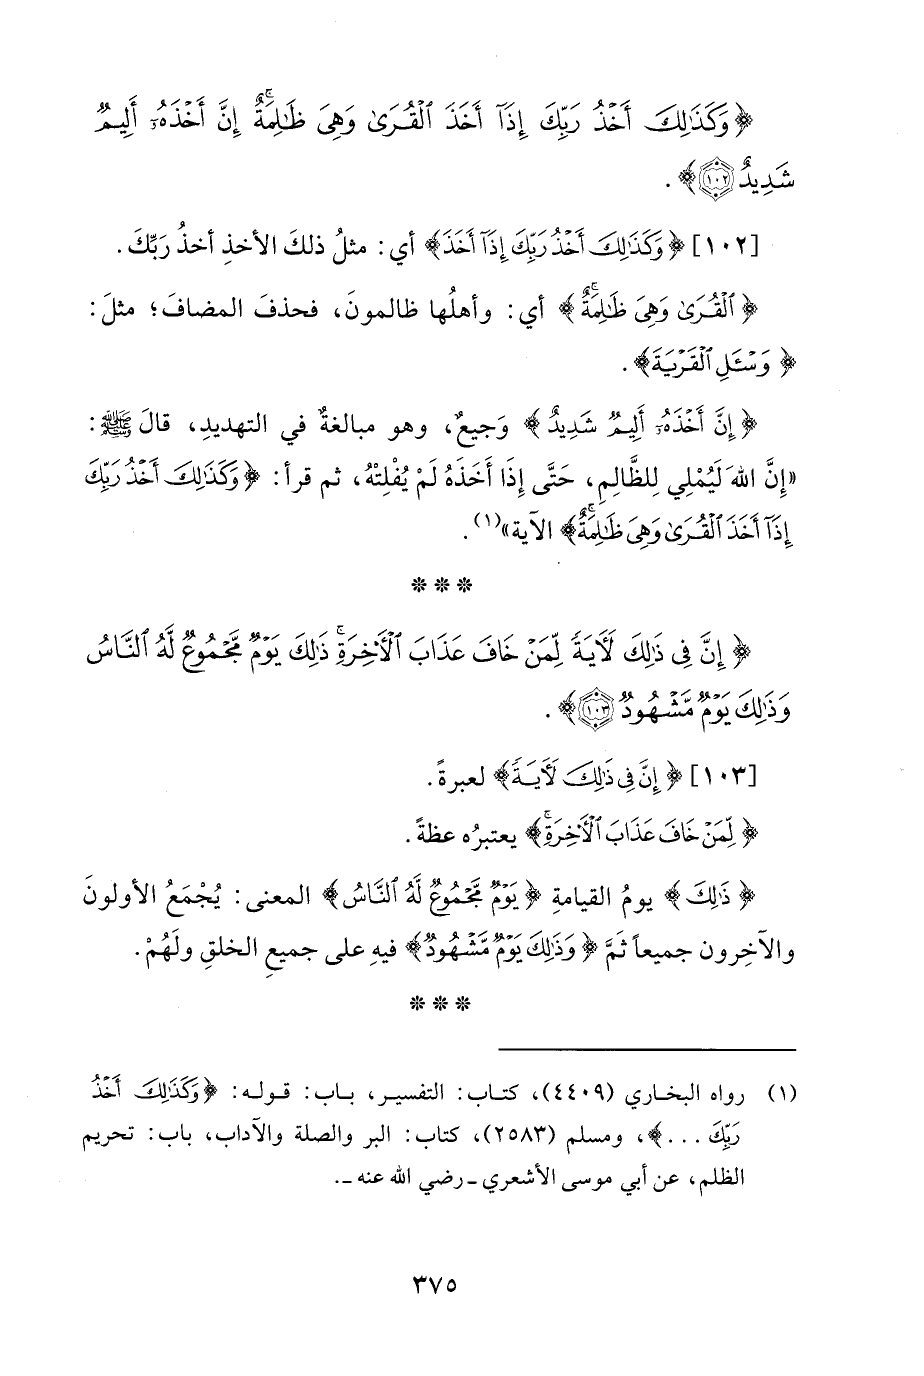 ﴿وَكَذَٰلِكَ أَخْذُ رَبِّكَ إِذَآ أَخَذَ ٱلْقُرَىٰ وَهِىَ ظَٰلِمَةٌ ۚ إِنَّ أَخْذَهُۥٓ أَلِيمٌ
شَدِيدٌ ﴿١٠٢﴾﴾.
[١٠٢] ﴿وَكَذَٰلِكَ أَخْذُ رَبِّكَ إِذَآ أَخَذَ﴾ أي: مثلُ ذلكَ الأخذِ أخذُ رَبِّكَ.
﴿ٱلْقُرَىٰ وَهِىَ ظَٰلِمَةٌ ۚ﴾ أي: وأهلُها ظالمونَ، فحذفَ المضافَ؛ مثلَ:
﴿وَسْـَٔلِ ٱلْقَرْيَةَ﴾.
﴿إِنَّ أَخْذَهُۥٓ أَلِيمٌ شَدِيدٌ﴾ وَجيعٌ، وهو مبالغةٌ في التهديدِ، قالَ ﷺ:
«إِنَّ اللهَ لَيُمْلِي لِلظَّالِمِ، حَتَّى إِذَا أَخَذَهُ لَمْ يُفْلِتْهُ، ثم قرأ: ﴿وَكَذَٰلِكَ أَخْذُ رَبِّكَ
إِذَآ أَخَذَ ٱلْقُرَىٰ وَهِىَ ظَٰلِمَةٌ ۚ﴾ الآية»(١).
* * *
﴿إِنَّ فِى ذَٰلِكَ لَأٓيَةً لِّمَنْ خَافَ عَذَابَ ٱلْأٓخِرَةِ ۚ ذَٰلِكَ يَوْمٌ مَّجْمُوعٌ لَّهُ ٱلنَّاسُ
وَذَٰلِكَ يَوْمٌ مَّشْهُودٌ ﴿١٠٣﴾﴾.
[١٠٣] ﴿إِنَّ فِى ذَٰلِكَ لَأٓيَةً﴾ لعبرةً.
﴿لِّمَنْ خَافَ عَذَابَ ٱلْأٓخِرَةِ ۚ﴾ يعتبرُه عظةً.
﴿ذَٰلِكَ﴾ يومُ القيامةِ ﴿يَوْمٌ مَّجْمُوعٌ لَّهُ ٱلنَّاسُ﴾ المعنى: يُجْمَعُ الأولونَ
والآخِرون جميعاً ثَمَّ ﴿وَذَٰلِكَ يَوْمٌ مَّشْهُودٌ﴾ فيهِ على جميعِ الخلقِ ولَهُمْ.
* * *
(١) رواه البخاري (٤٤٠٩)، كتاب: التفسير، باب: قوله: ﴿وَكَذَٰلِكَ أَخْذُ
رَبِّكَ ...﴾، ومسلم (٢٥٨٣)، كتاب: البر والصلة والآداب، باب: تحريم
الظلم، عن أبي موسى الأشعري ـ رضي الله عنه ـ.
٣٧٥